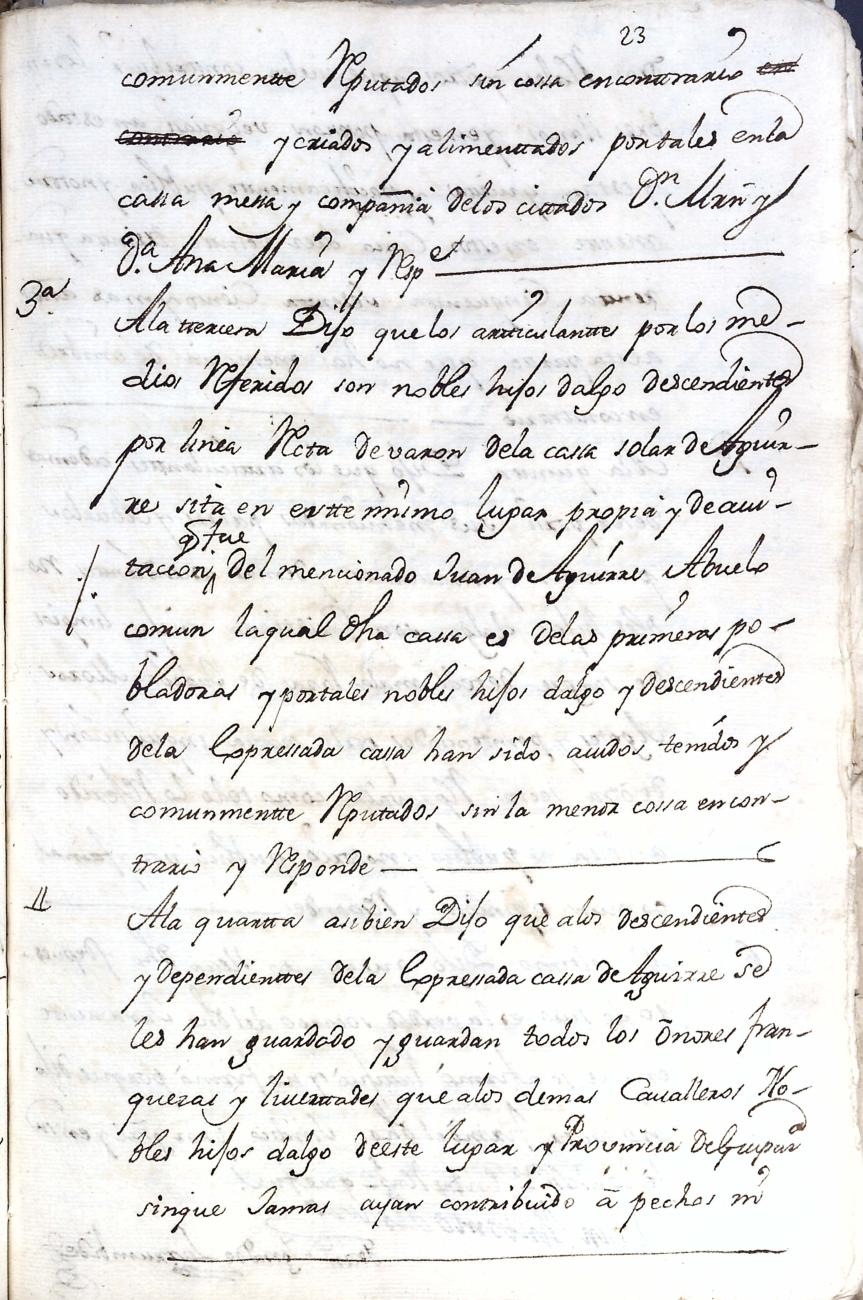 23
comunmentte Reputados sin cossa encontrario en
contrario y criados y alimenttados por tales en la
cassa messa y compañia delos cittados Dn. Mrn y
Da. Ana Maria y Respe
3a. Ala ttercera Dijo que los artticulanttes por los me-
dios Referidos son nobles hijos dalgo descendientes
por linea Recta de varon dela cassa solar de Aguir-
re sita en estte mismo lugar propia y de avi-
q. fue
tacion del mencionado Juan de Aguirre Abuelo
comun laqual dha cassa es delas primeras po-
bladoras y por tales nobles hijos dalgo y descendientes
dela Expressada cassa han sido avidos tenidos y
comunmentte Reputados sin la menor cossa en con-
trario y Responde
4 Ala quartta asibien Dijo que alos descendientes
y dependienttes dela Expressada cassa de Aguirre se
les han guardado y guardan todos los onores fran-
quezas y liverttades que alos demas Cavalleros No-
bles hijos dalgo de este lugar y Provincia de Guipuz
sinque Jamas ayan contribuido à pechos ni